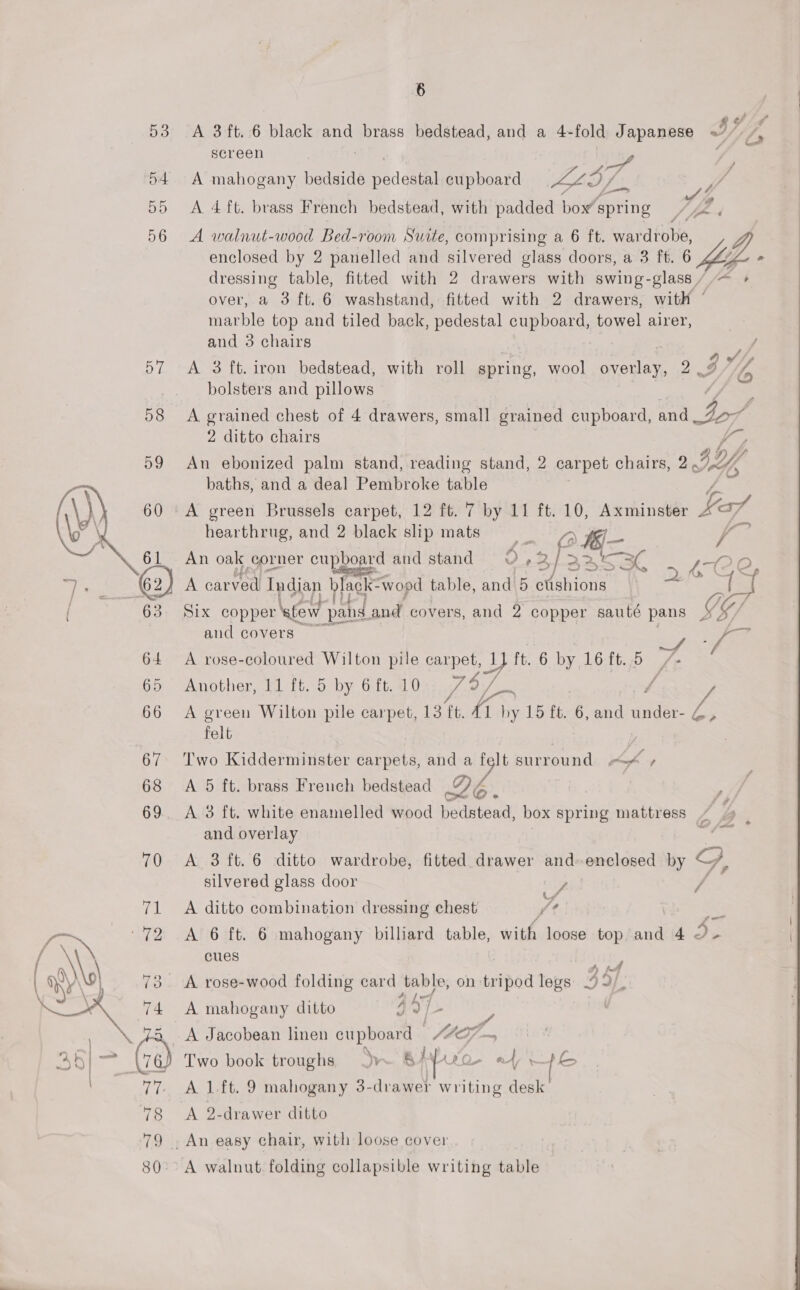 6
53 A 3 ft. 6 black and brass bedstead, and a 4-fold Japanese
screen
54 A mahogany bedside pedestal cupboard
55 A 4 ft. brass French bedstead, with padded box spring
56 A walnut-wood Bed-room Suite, comprising a 6 ft. wardrobe,
enclosed by 2 panelled and silvered glass doors, a 3 ft. 6
dressing table, fitted with 2 drawers with swing-glass
over, a 3 ft. 6 washstand, fitted with 2 drawers, with
marble top and tiled back, pedestal cupboard, towel airer,
and 3 chairs
57 A 3 ft. iron bedstead, with roll spring, wool overlay, 2
bolsters and pillows
58 A grained chest of 4 drawers, small grained cupboard, and
2 ditto chairs
59 An ebonized palm stand, reading stand, 2 carpet chairs, 2
baths, and a deal Pembroke table
60 A green Brussels carpet, 12 ft. 7 by 11 ft. 10, Axminster
hearthrug, and 2 black slip mats
61 An oak corner cupboard and stand
62 A carved Indian black-wood table, and 5 cushions
63 Six copper stew pans and covers, and 2 copper sauté pans
and covers
64 A rose-coloured Wilton pile carpet, 11 ft. 6 by 16 ft. 5
65 Another, 11 ft. 5 by 6 ft. 10
66 A green Wilton pile carpet, 13 ft. 11 by 15 ft. 6, and under-
felt
67 Two Kidderminster carpets, and a felt surround
68 A 5 ft. brass French bedstead
69 A 3 ft. white enamelled wood bedstead, box spring mattress
and overlay
70 A 3 ft. 6 ditto wardrobe, fitted drawer and enclosed by
silvered glass door
71 A ditto combination dressing chest
72 A 6 ft. 6 mahogany billiard table, with loose top and 4
cues
73 A rose-wood folding card table, on tripod legs
74 A mahogany ditto
75 A Jacobean linen cupboard
76 Two book troughs
77 A 1 ft. 9 mahogany 3-drawer writing desk
78 A 2-drawer ditto
79 An easy chair, with loose cover
80 A walnut folding collapsible writing table